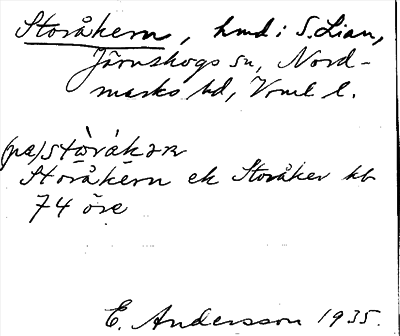 Storåkern, hmd i S. Lian,
Järnskogs sn, Nord-
marks hd, Vrml l.
(på) stòråkəɴ
Storåkern ek Storåker kb
74 öre
E. Andersson 1935.